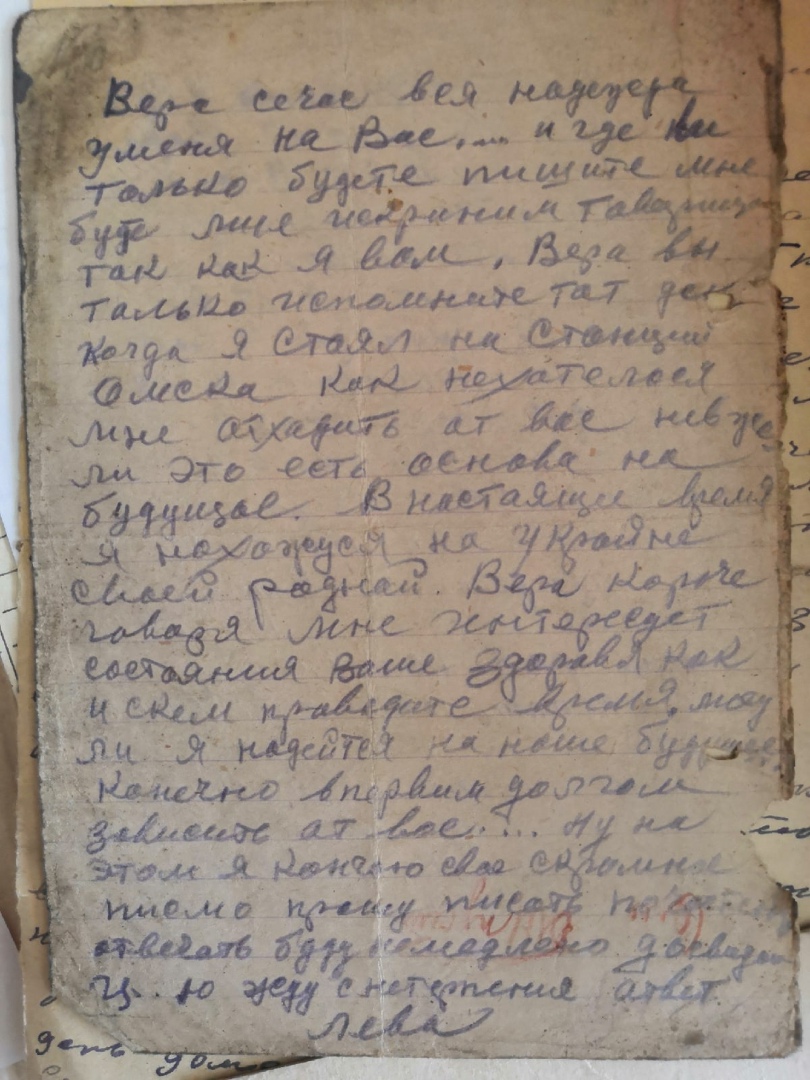 Вера сечас вся надежда
уменя на Вас.... и где ви
только будете пишите мне
буде мне искриним товарищ
так как я вам, Вера вы
только испомните тат день
когда я стоял на Станции
Омска как нехателося
мне отхадить ат вас невже
ли это есть основа на
будущае. В настаящи время
я нахажуся на Украйне
своей роднай. Вера короче
говаря мне интересует
состояния ваше здоровя как
и скем праводите время, магу
ли я надеятся на наше будущее,
Канечно впервим долгам
зависить ат вас..... Ну на
этом я кончаю свое скромное
писмо прошу писать
отвечать буду немедлено досвидан
Ц. ю жду снетерпения атвет
Лева
день дом